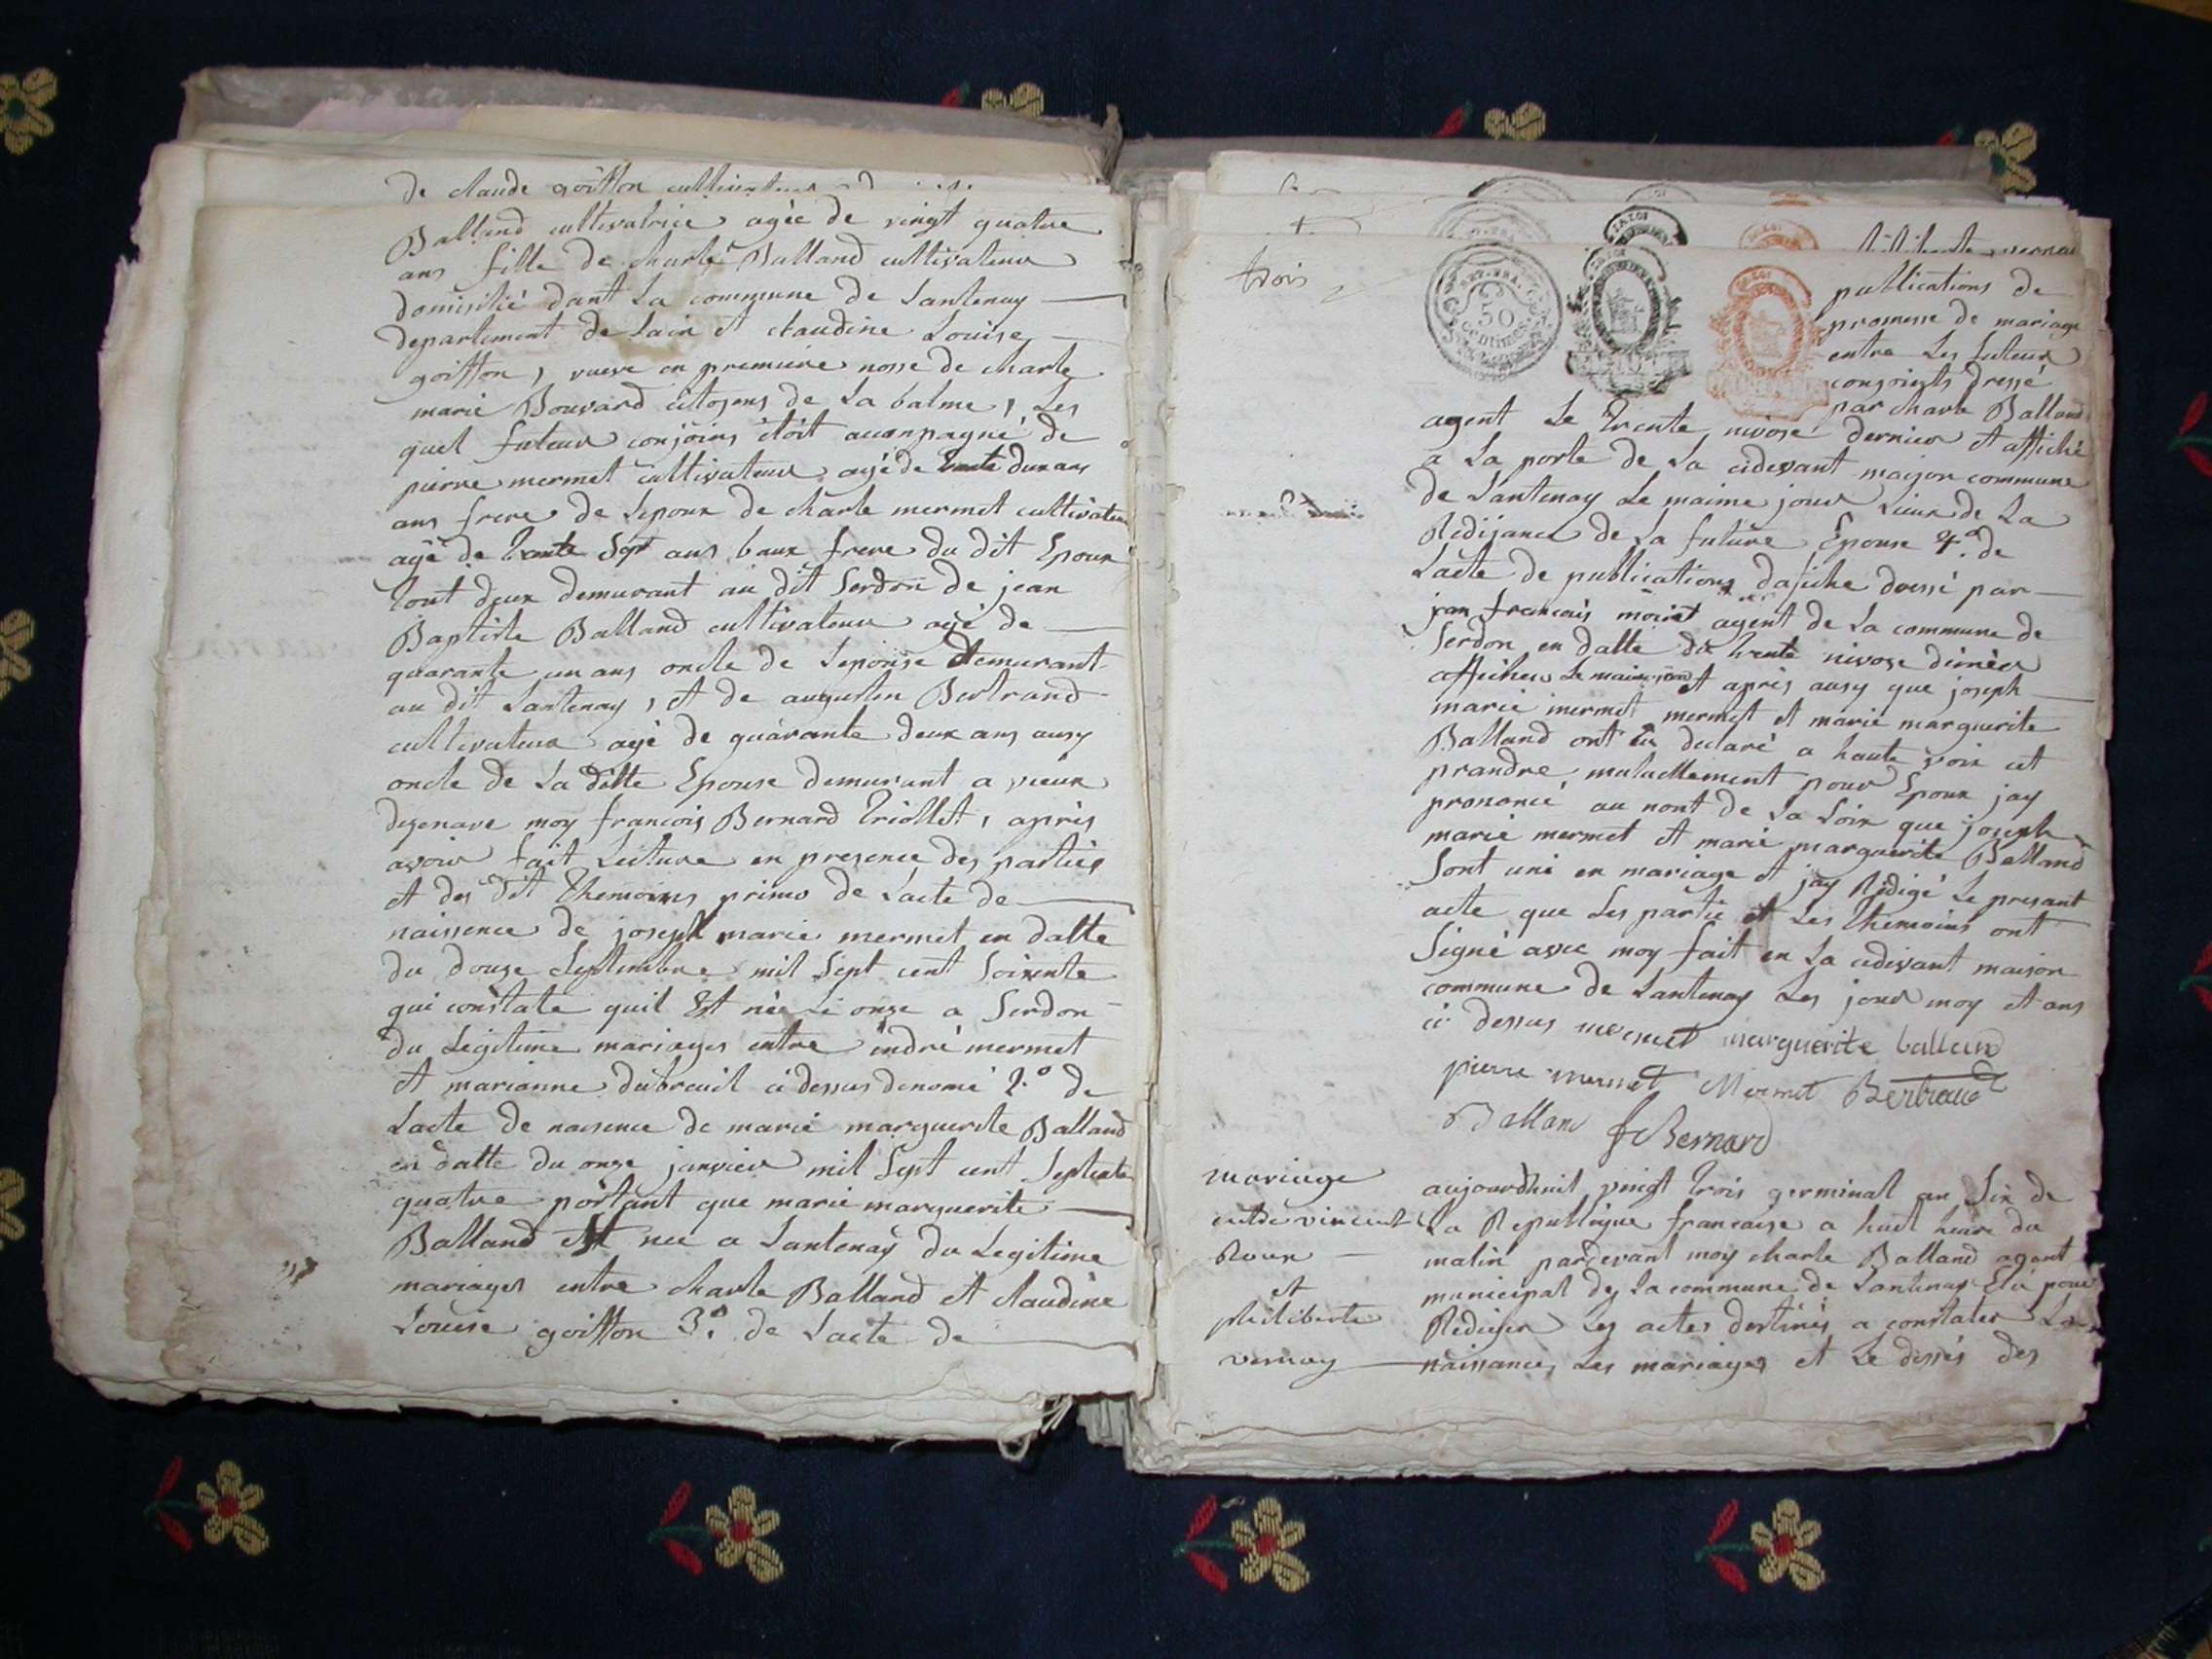 de claude goiffon cultivateur
Balland cultivatrice agée de vingt quatre
ans fille de charle Balland cultivateur
domicilié dant la commune de Lantenay
departement de Lain et claudine Louise
goiffon, vueve en premiere nosse de charle
marie Bouvard citoyens de La balme, Les
quel futeur conjoins étoit acconpagné de
pierre mermet cultivateur agé de trente deux ans
ans frere de Lepoux de charle mermet cultivateur
agé de trente sept ans baux frere du dit Epoux
tout deux demurant au dit Serdon de jean
Baptiste Balland cultivateur agé de
quarante un ans oncle de Lepouse demurant
au dit Lantenay, et de augustin Bertrand
cultivateur agé de quarante deux ans ausy
oncle de La ditte Epouse demurant a vieux
disenave moy francois Bernard triollet, apris
avoir fait Lecture en presence des parties
et des dit themoins primo de Lacte de
naissence de joseph marie mermet en datte
du douze septembre mil sept cent soixente
qui constate quil Est née Le onze a Serdon
du Legitime mariages entre andré mermet
et marianne dubreuil ci dessus denomé 2.° de
Lacte de naisence de marie marguerite Balland
en datte du onze janvier mil sept cent septente
quatre portant que marie marguerite
Balland Est nee a Lantenay du Legitime
mariages entre charle Balland et claudine
Louise goiffon 3.° de Lacte de
trois
50
centimes
publications de
promesse de mariage
entre Les futeur
conjoints dressé
par charle Balland
agent Le trente nivose dernier et affiché
a La porte de La cidevant maison commune
de Lantenay Le maime jour Lieux de La
Rédijance de La future Epouse 4.° de
Lacte de publications dafiche dressé par
jean francais moiret agent de La commune de
Serdon en datte du trente nivose dernier
affiches Le maime jour et apris ausy que joseph
marie mermet mermet et marie marguerite
Balland ont eu declaré a haute voix cet
prandre mutuellement pour Epoux jay
prononcé au nont de La Loix que joseph
marie mermet et marie marguerite Balland
Sont uni en mariage et jay Rédigé Le presant
acte que Les partie et Les themoins ont
Signé avec moy fait en La cidevant maison
commune de Lantenay Les jour moy et ans
ci dessus mermet marguerite balland
pierre mermet Mermet Bertrand
Balland f Bernard
mariage
entre vincent
Roux
et
philiberte
vernay
aujourdhuit vingt trois germinal an Six de
La Republique francaise a huit heure du
matin pardevant moy charle Balland agent
municipal de La commune de Lantenay Elu pour
Rediger Les actes destinés a constater La
naissances Les mariages et Le dessés des